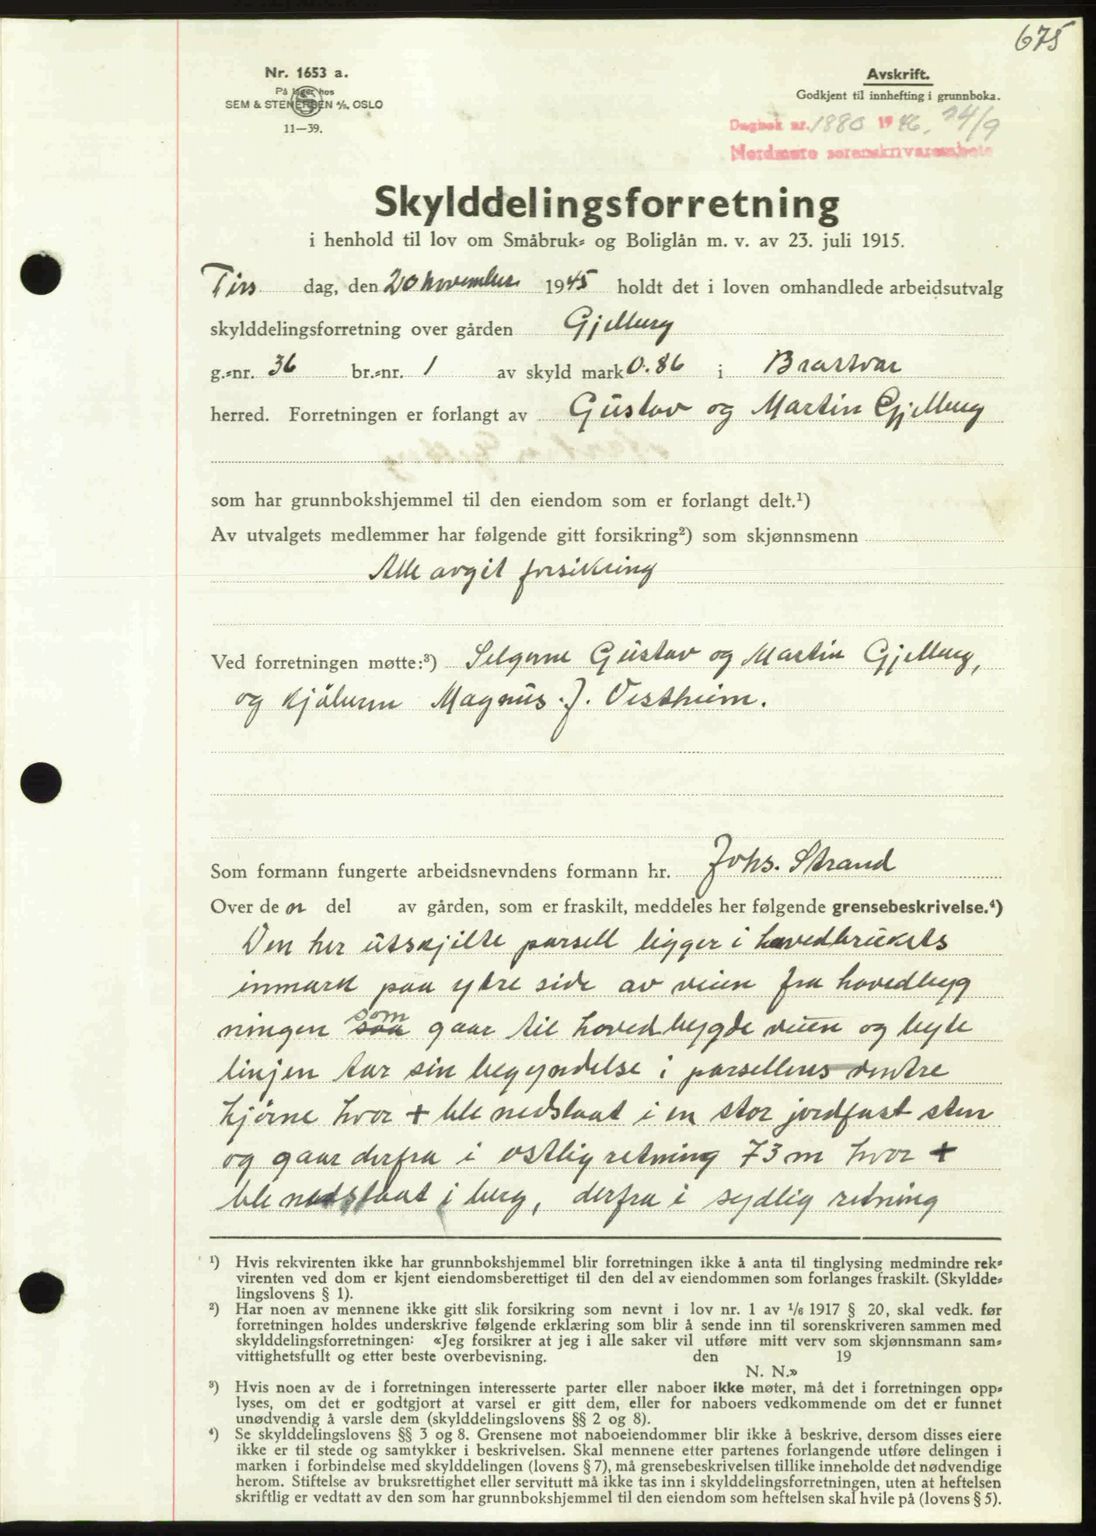 675
Nr. 1653 a.
På lager hos
SEM & STENERSEN A/S, OSLO
11—39.
Avskrift.
Godkjent til innhefting i grunnboka.
Dagbok nr. 1880 1946. 24/9
Nordmøre sorenskriverembete
Skylddelingsforretning
i henhold til lov om Småbruk- og Boliglån m. v. av 23. juli 1915.
Tirs dag, den 20 november 1945 holdt det i loven omhandlede arbeidsutvalg
skylddelingsforretning over gården Gjelberg
g.-nr. 36 br.-nr. 1 av skyld mark 0.86 i Brattvær
herred. Forretningen er forlangt av Gustav og Martin Gjelberg
som har grunnbokshjemmel til den eiendom som er forlangt delt.¹)
Av utvalgets medlemmer har følgende gitt forsikring²) som skjønnsmenn
Alle avgit forsikring
Ved forretningen møtte:³) Selgerne Gustav og Martin Gjelberg,
og kjøberen Magnus J. Vestheim.
Som formann fungerte arbeidsnevndens formann hr. Johs. Strand
Over de n del av gården, som er fraskilt, meddeles her følgende grensebeskrivelse.⁴)
Den her utskjilte parsell ligger i hovedbrukets
inmark paa ytre side av veien fra hovedbyg
ningen som gaar til hovedbygde veien og byte
linjen tar sin begyndelse i parsellens ventre
hjörne hvor + ble nedslaat i en stor jordfast sten
og gaar derfra i ostlig retning 73 m hvor +
ble nedslaat i berg, derfra i sydlig retning
¹) Hvis rekvirenten ikke har grunnbokshjemmel blir forretningen ikke å anta til tinglysing medmindre rek-
virenten ved dom er kjent eiendomsberettiget til den del av eiendommen som forlanges fraskilt. (Skyldde-
lingslovens § 1).
²) Har noen av mennene ikke gitt slik forsikring som nevnt i lov nr. 1 av 1/6 1917 § 20, skal vedk. før
forretningen holdes underskrive følgende erklæring som blir å sende inn til sorenskriveren sammen med
skylddelingsforretningen: «Jeg forsikrer at jeg i alle saker vil utføre mitt verv som skjønnsmann sam-
vittighetsfullt og etter beste overbevisning. den 19
N. N.»
³) Hvis noen av de i forretningen interesserte parter eller naboer ikke møter, må det i forretningen opp-
lyses, om det er godtgjort at varsel er gitt dem, eller for naboers vedkommende om det er funnet
unødvendig å varsle dem (skylddelingslovens §§ 2 og 8).
⁴) Se skylddelingslovens §§ 3 og 8. Grensene mot naboeiendommer blir ikke å beskrive, dersom disses eiere
ikke er til stede og samtykker i beskrivelsen. Skal mennene etter partenes forlangende utføre delingen i
marken i forbindelse med skylddelingen (lovens § 7), må grensebeskrivelsen tillike inneholde det nødvendige
herom. Stiftelse av bruksrettighet eller servitutt må ikke tas inn i skylddelingsforretningen, uten at heftelsen
skriftlig er vedtatt av den som har grunnbokshjemmel til den eiendom som heftelsen skal hvile på (lovens § 5).